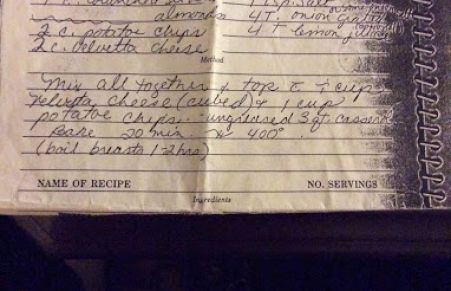 almonds
4 T. onion grated
2 c. potatoe chips
4 T lemon juice
2 c. velvetta cheese
Method
Mix all together & top c̄ cup
cheese (cubed) & 1 cup
potatoe chips. - ungreased 3 qt.
Bake 20 min. 400°.
(boil breasts 1-2 hrs)
NAME OF RECIPE NO. SERVINGS
Ingredients